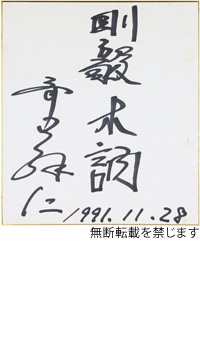 剛毅木訥
仁
1991.11.28
無断転載を禁じます